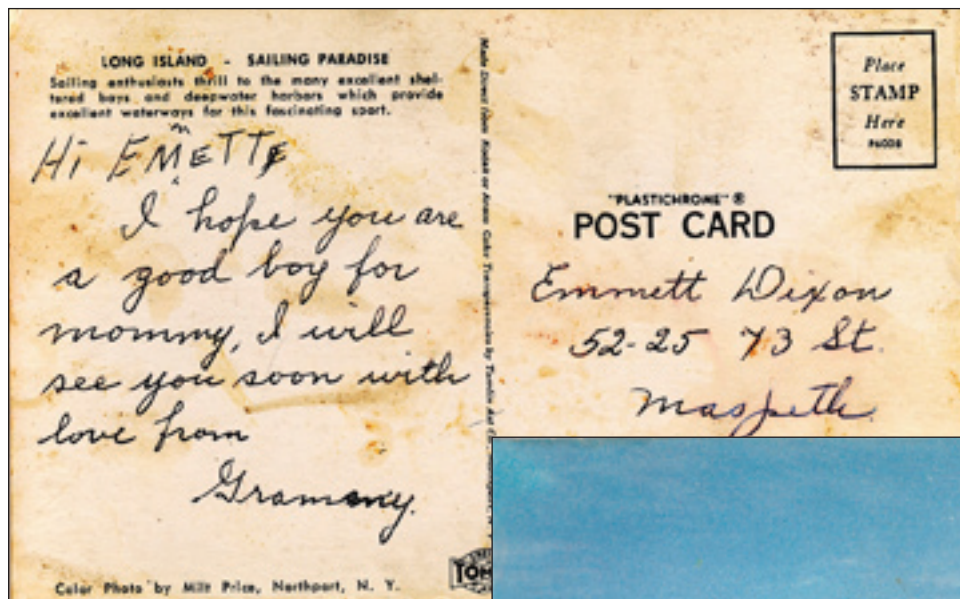 LONG ISLAND - SAILING PARADISE
Sailing enthusiasts thrill to the many excellent shel-
tered bays and deepwater harbors which provide
excellent waterways for this fascinating sport.
m
Hi EMETT
I hope you are
a good boy for
mommy, I will
see you soon with
love from
Grammy.
Color Photo by Milt Price, Northport, N. Y.
Made Direct from Kodak or Ansco Color Transparencies by Tomlin Art
Place
STAMP
Here
"PLASTICHROME" ®
POST CARD
Emmett Dixon
52-25 73 St.
Maspeth
TOM